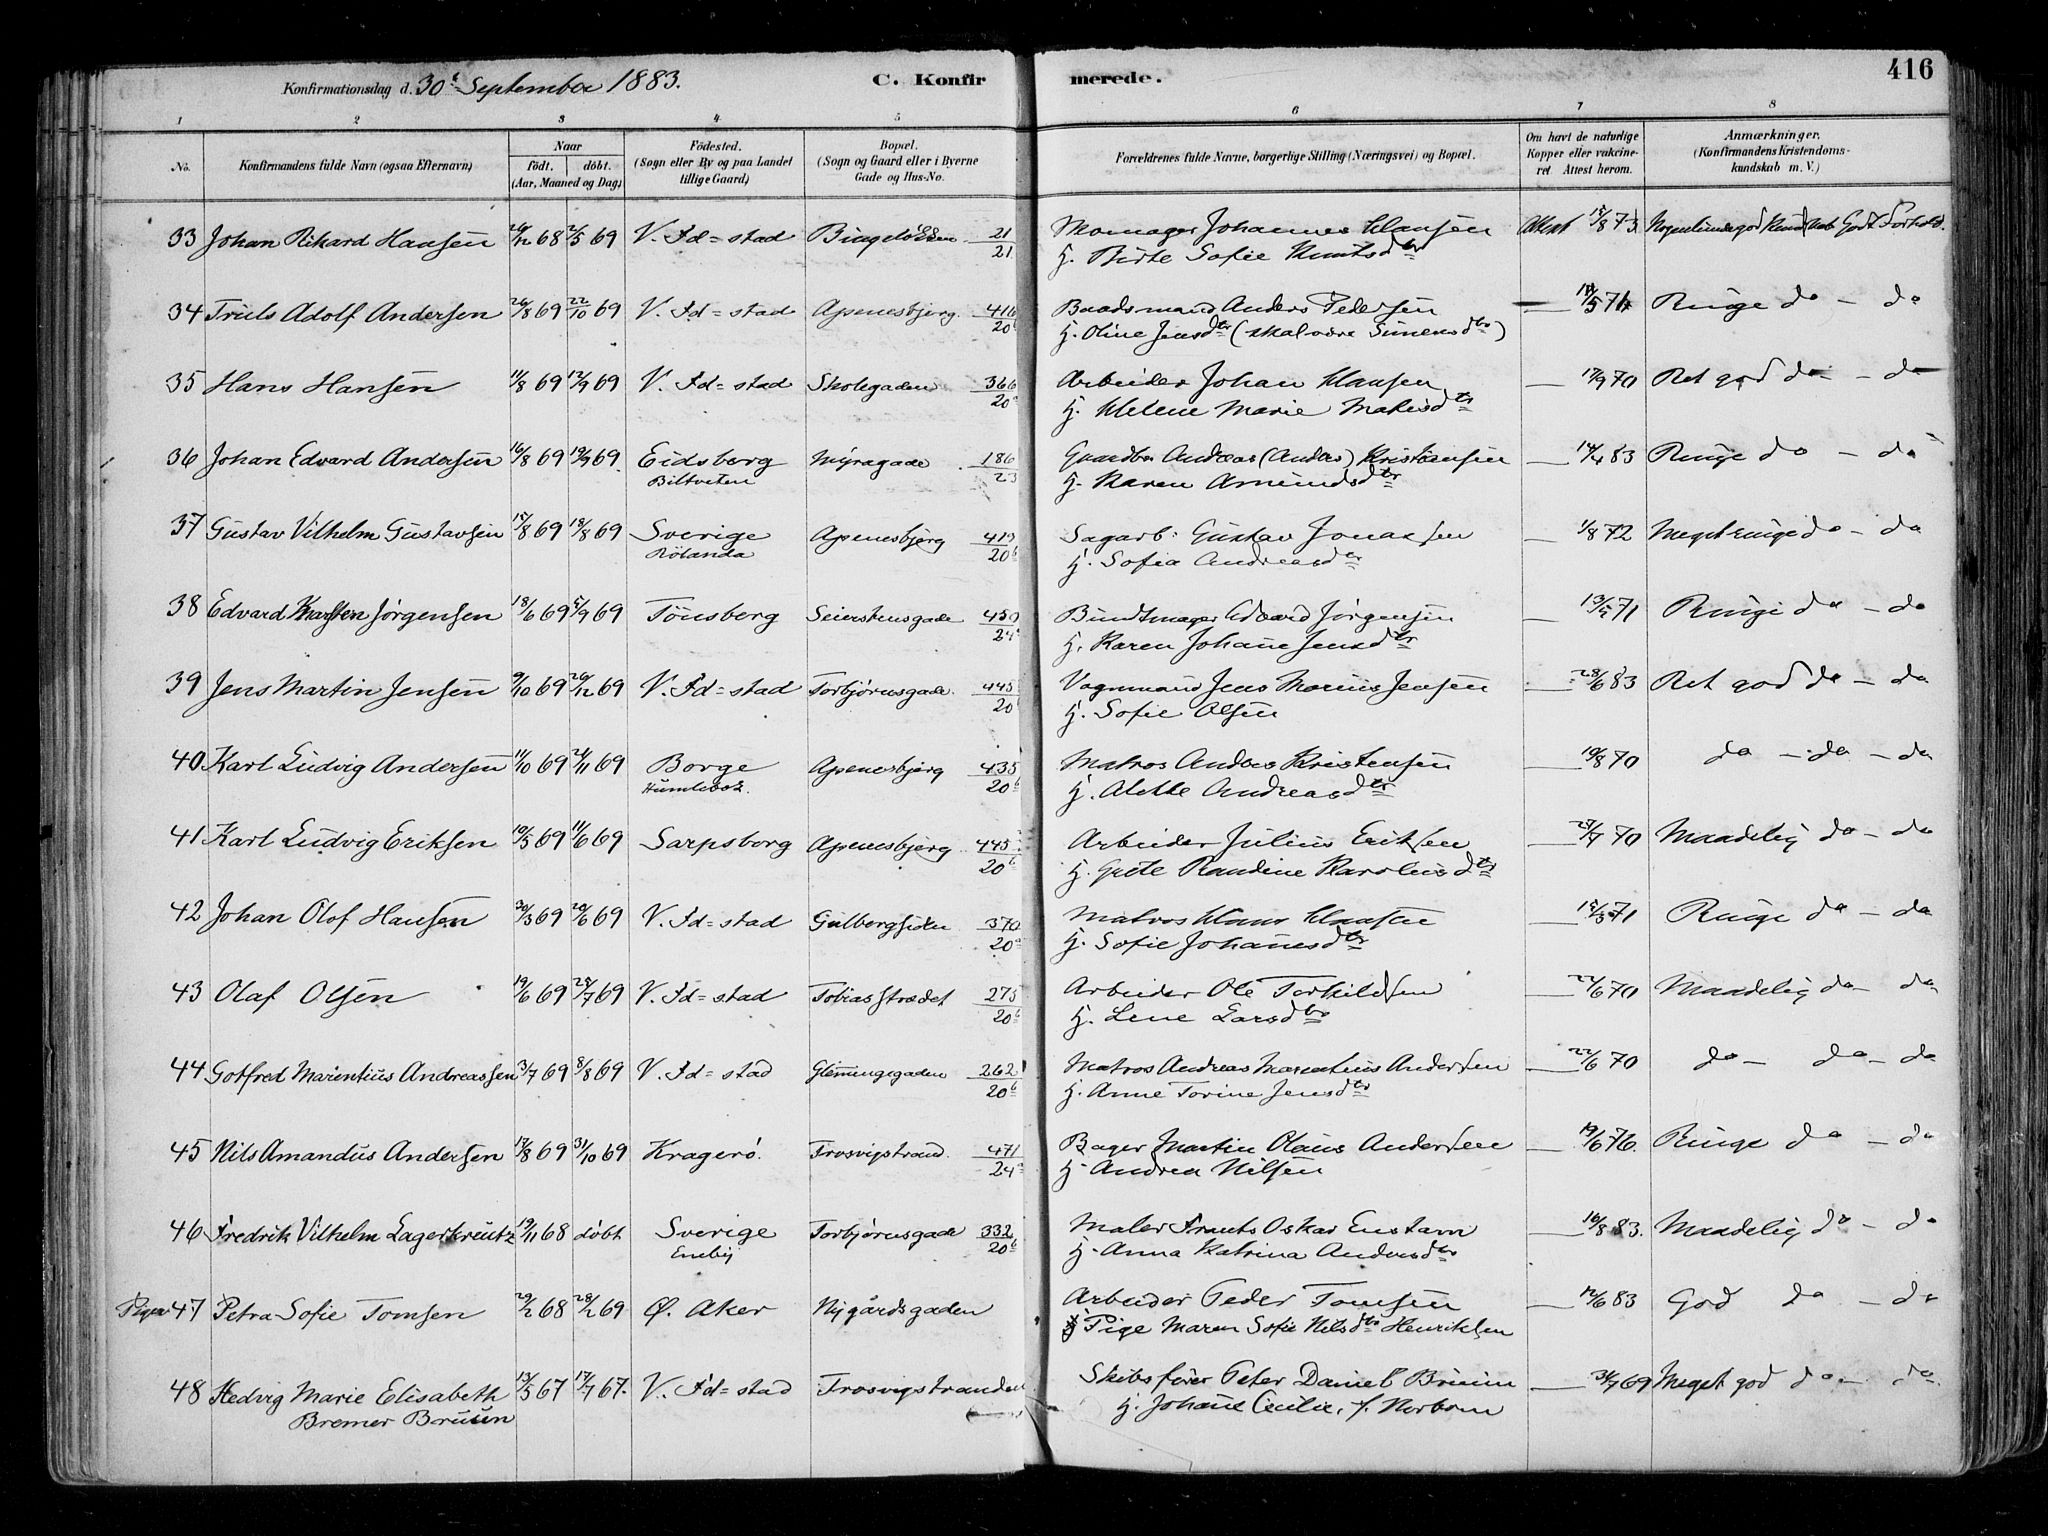 Konfirmationsdag d. 30te September 1883. C. Konfir merede. 416
1 2 3 4 5 6 7 8
No. Konfirmandens fulde Navn (ogsaa Efternavn) Naar født. døbt. (Aar, Maaned og Dag) Fødested. (Sogn eller By og paa Landet tillige Gaard) Bopæl. (Sogn og Gaard eller i Byerne Gade og Hus-No. Forældrenes fulde Navne, borgerlige Stilling (Næringsvei) og Bopæl. Om havt de naturlige Kopper eller vakcineret. Attest herom. Anmærkninger. (Konfirmandens Kristendomskundskab m. V.)
33 Johan Rikard Hansen 68 2/5 69 V. Fd=stad 21/21 Johannes Hansen Attest 15/8 73 God Forhold.
Hj. Birte Sofie Knutsdtr
34 Truls Adolf Andersen 26/8 69 22/10 69 V. Fd=stad Apenesbjerg 416/20b Baadsmand Anders Pedersen — Ringe do — do
Hj. Oline Jensdtr (skal være Simensdtr)
35 Hans Hansen 11/8 69 12/9 69 V. Fd=stad Skolegaden 366/20a Arbeider Johan Hansen — 17/9 70 Ret god do — do
Hj. Helene Marie
36 Johan Edvard Andersen 16/8 69 19/9 69. Eidsberg Myragade 186/23 Gaardbr Andreas (Anders) Kristensen — 14/4 83 Ringe do — do
Biltveten Hj. Karen Amundsdtr
37 Gustav Vilhelm Gustavsen 15/8 69 18/8 69 Sverige Apenesbjerg 419/20b Sagarb: Gustav Jonassen — 1/8 72 Meget ringe do — do
Rölanda Hj. Sofia Andreasdtr
38 Edvard Karsten Jørgensen 18/6 69 5/9 69 Tönsberg Seierstensgade 450/24a Bundtmager Edvard Jørgensen — 13/5 71 Ringe do — do
Hj. Karen Johane Jensdtr
39 Jens Martin Jensen 9/10 69 26/12 69 V. Fd=stad Torbjørnsgade 445/20b Vognmand Jens Marius Jensen — 28/6 83 Ret god do — do
Hj. Sofie Olsen
40 Karl Ludvig Andersen 11/10 69 21/11 69 Borge Apenesbjerg 435/20b Matros Anders Kristensen — 19/8 70 do — do — do
Humlebæk. Hj. Alette Andreasdtr
41 Karl Ludvig Eriksen 19/5 69 11/6 69 Sarpsborg Apenesbjerg 445/20b Arbeider Julius Eriksen — 70 Maadelig do — do
Hj. Grete Randine Karoliusdtr
42 Johan Olof Hansen 30/3 69 20/6 69 V. Fd=stad Gulbergsiden 370/20a Matros Hans Hansen — 15/3 71 Ringe do — do
Hj. Sofie Johanesdtr
43 Olaf Olsen 19/6 69 25/7 69 V. Fd=stad Tobiasstrædet 275/20b Arbeider Ole Torkildsen — 22/6 70 Maadelig do — do
Hj. Lene Larsdtr
44 Gotfred Marentius Andreassen 3/7 69 8/8 69 V. Fd=stad Glemmingegaden 262/20b Matros Andreas Marentius Andersen — 22/6 70 do — do — do
Hj. Anne Torine Jensdtr
45 Nils Amandus Andersen 17/8 69 31/10 69 Kragerö. Trosvigstrand. 471/24a Bager Martin Olaus Andersen — 19/6 76. Ringe do — do
Hj. Andrea Nilsen
46 Fredrik Vilhelm Lagerkreutz 19/11 68 døbt Sverige Torbjørnsgade 332/20b Maler Frants Oskar — 16/8 83. Maadelig do — do
Hj. Anna Katrina Andersdtr
Piger 47 Petra Sofie Tomsen 29/2 68 28/2 69 Ø. Aker Nygårdsgaden Arbeider Peder Tomsen — 12/6 83 God do — do
Pige Maren Sofie Nilsdtr Henriksen
48 Hedvig Marie Elisabeth 13/5 67 17/7 67. V. Fd=stad Trosvigstranden Skibsfører Peter Daniel Bruun — 69 Meget god do — do
Bremer Bruun Hj. Johane Cecilie, f. Norbom